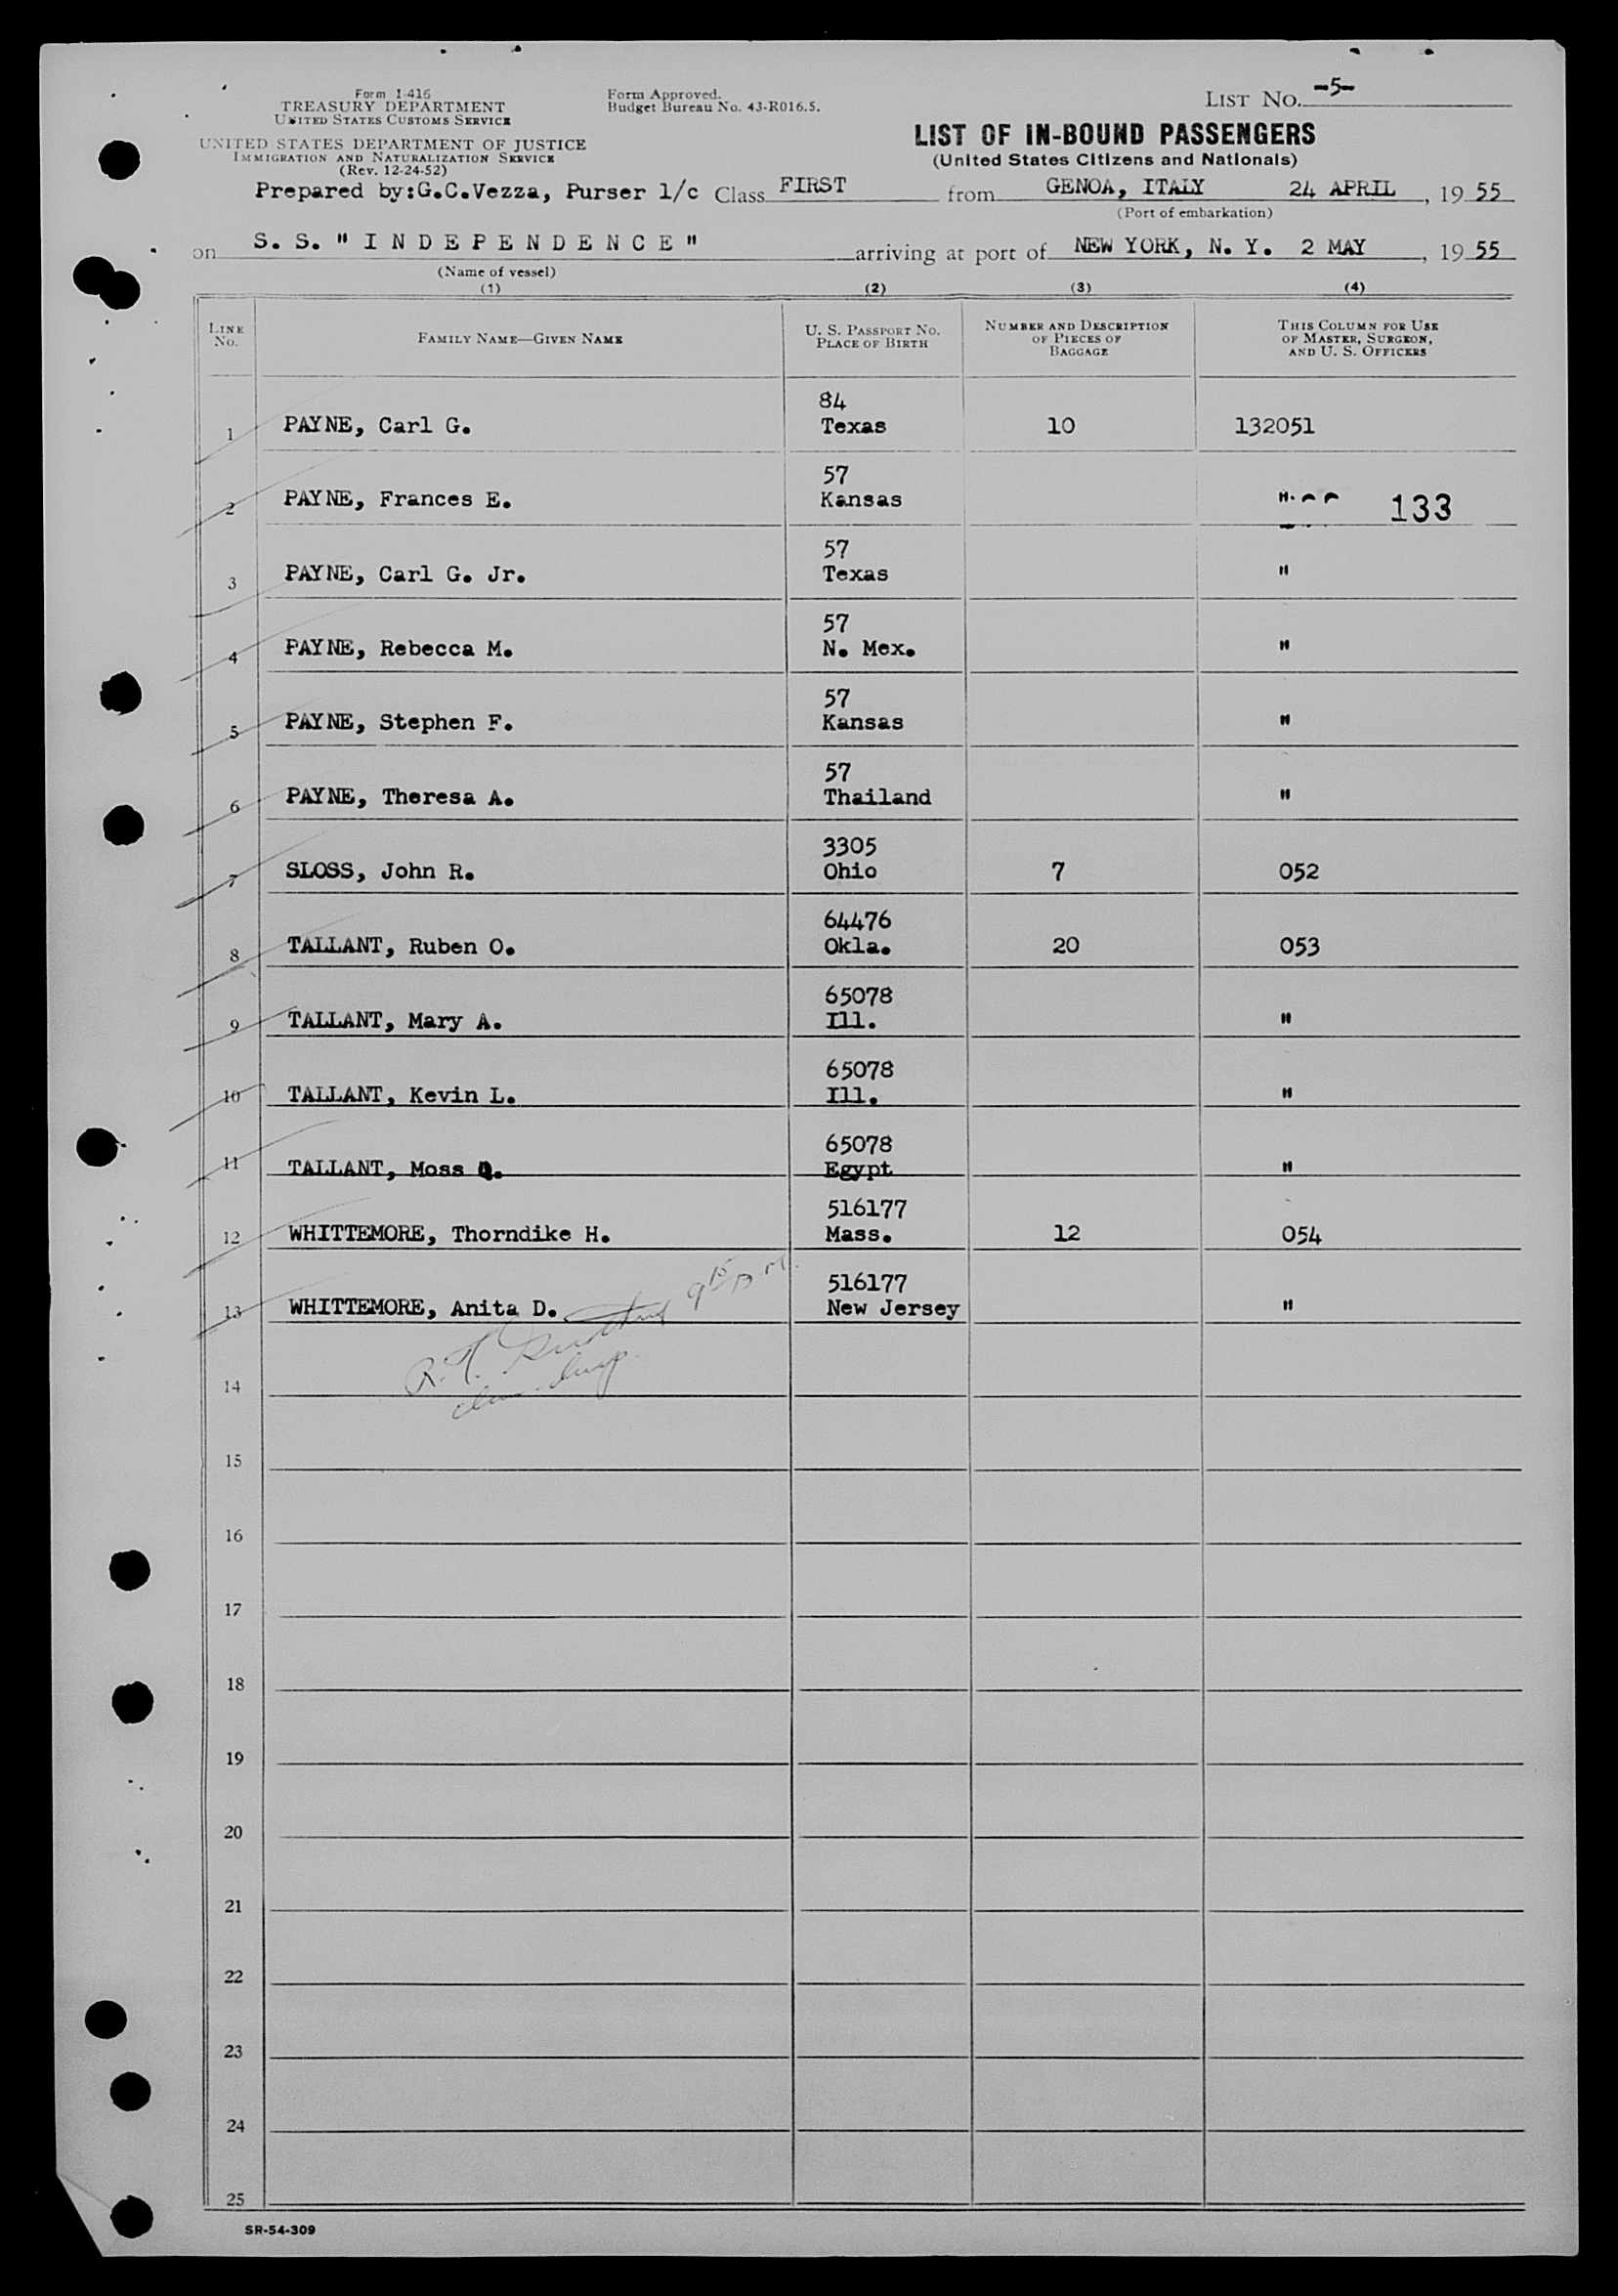 Form I-416
TREASURY DEPARTMENT
UNITED STATES CUSTOMS SERVICE
UNITED STATES DEPARTMENT OF JUSTICE
IMMIGRATION AND NATURALIZATION SERVICE
(Rev. 12-24-52)
Form Approved.
Budget Bureau No. 43-R016.5.
LIST NO. -5-
LIST OF IN-BOUND PASSENGERS
(United States Citizens and Nationals)
Prepared by:G.C.Vezza, Purser 1/c Class FIRST from GENOA, ITALY 24 APRIL, 19 55
(Port of embarkation)
on S. S. " I N D E P E N D E N C E " arriving at port of NEW YORK, N. Y. 2 MAY, 19 55
(Name of vessel)
(1) (2) (3) (4)
LINE NO. FAMILY NAME—GIVEN NAME U. S. PASSPORT NO. PLACE OF BIRTH NUMBER AND DESCRIPTION OF PIECES OF BAGGAGE THIS COLUMN FOR USE OF MASTER, SURGEON, AND U. S. OFFICERS
84
1 PAYNE, Carl G. Texas 10 132051
57
2 PAYNE, Frances E. Kansas " 133
57
3 PAYNE, Carl G. Jr. Texas "
57
4 PAYNE, Rebecca M. N. Mex. "
57
5 PAYNE, Stephen F. Kansas "
57
6 PAYNE, Theresa A. Thailand "
3305
7 SLOSS, John R. Ohio 7 052
64476
8 TALLANT, Ruben O. Okla. 20 053
65078
9 TALLANT, Mary A. Ill. "
65078
10 TALLANT, Kevin L. Ill. "
65078
11 TALLANT, Moss Egypt "
516177
12 WHITTEMORE, Thorndike H. Mass. 12 054
516177
13 WHITTEMORE, Anita D. New Jersey "
R. H.
14
15
16
17
18
19
20
21
22
23
24
25
SR-54-309